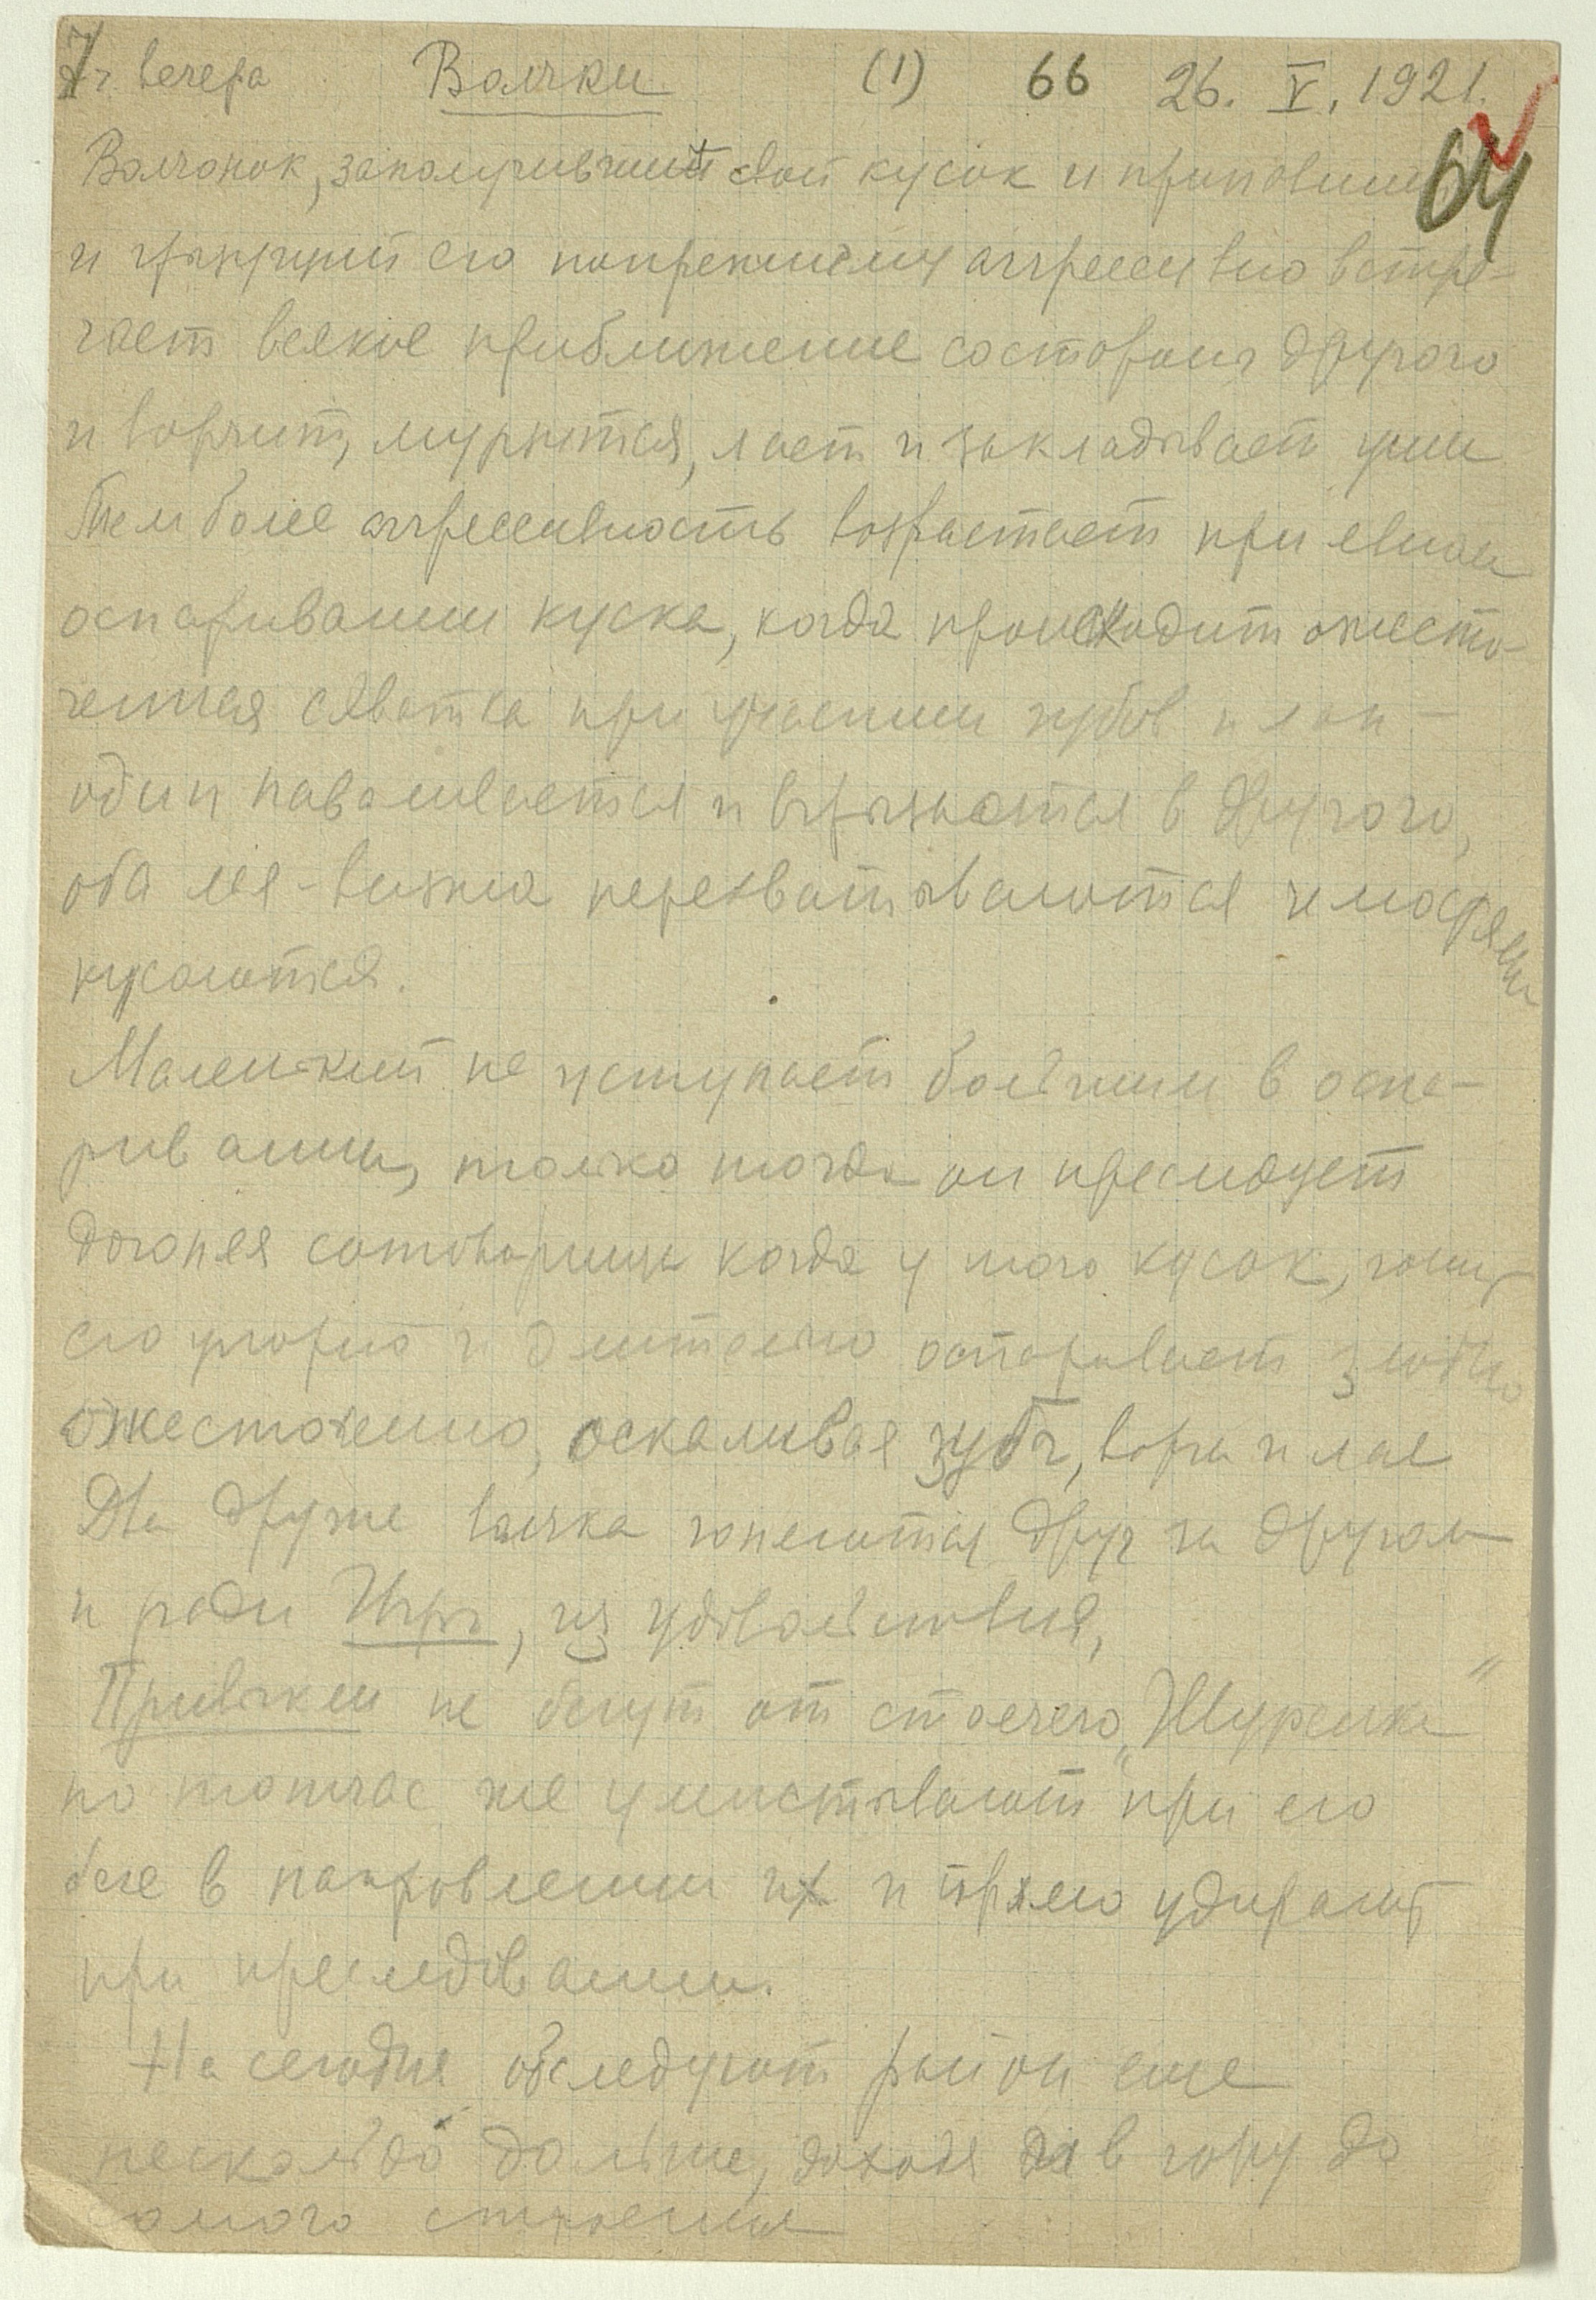 7 ч. вечера Волчки (1) 66 26. V. 1921.
64
Волчонок, заполучивший свой кусок и
и грызущий его попрежнему аггрессивно встре-
чает всякое приближение со стороны другого
и ворчит, мурзится, лает и закладывает уши
Тем более аггрессивность возрастает при явном
оспаривании куска, когда происходит ожесто-
ченная схватка при участии зубов и лап —
один наваливается и вгрызается в другого,
оба лёжа перехватываются челюстями
кусаются.
Маленький не уступает большим в оспа-
ривании, только тогда он преследует
догоняя сотоварища когда у того кусок,
его упорно и длительно оспаривает злобно
ожесточенно, оскаливая зубы, ворча и лая
Два другие волчка гоняются друг за другом
и ради Игры, из удовольствия,
Привычки не бегут от стоячего „Шурелка"
но тотчас же улепетывают при его
беге в направлении их и прямо удирают
при преследовании.
На сегодня обследуют район еще
несколько дальше, доходя в гору до
самого строения